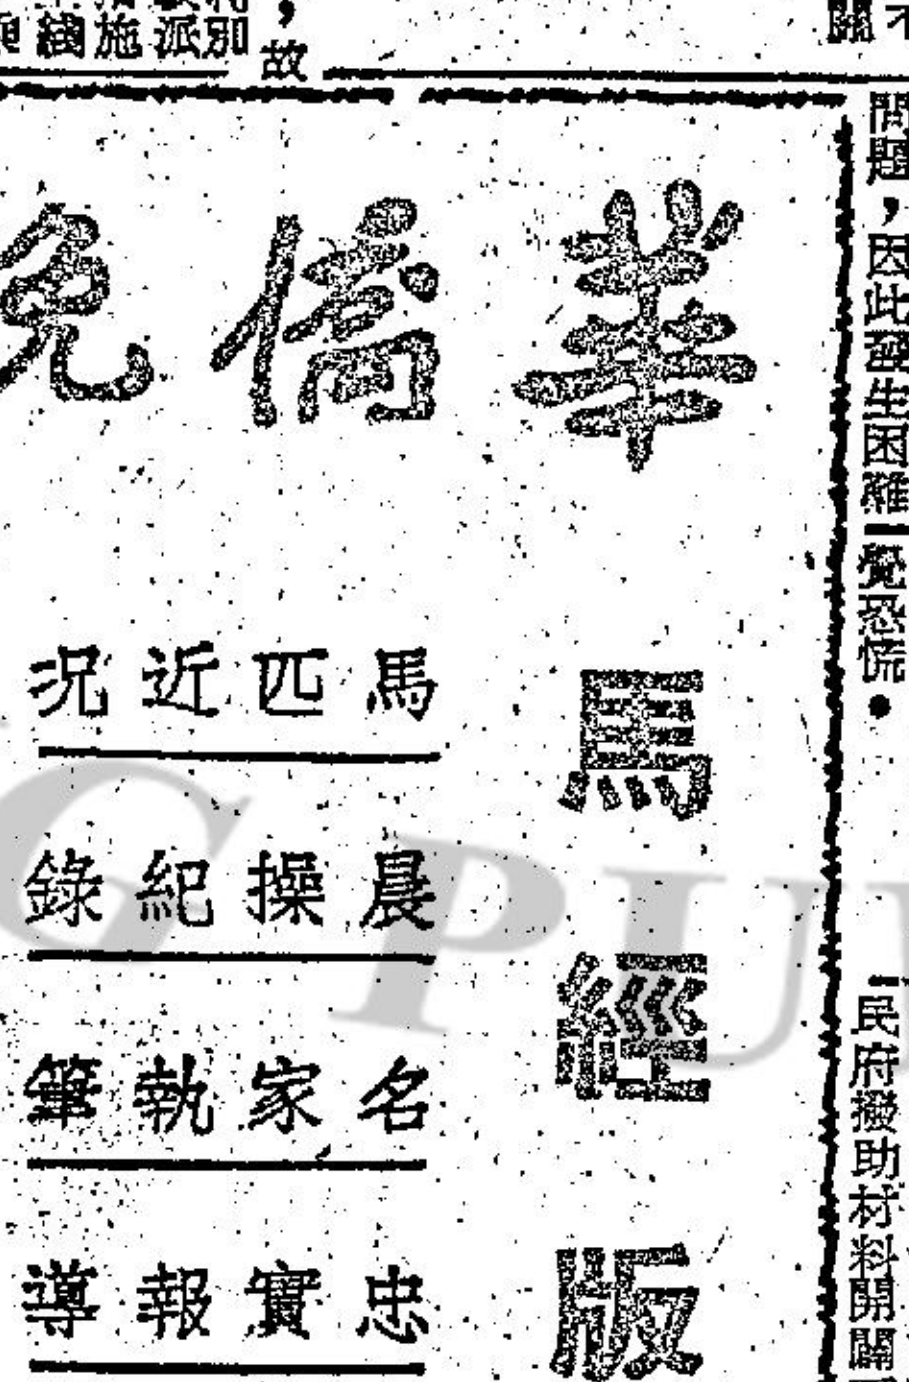 故
別
派
施
問題，因此發生困難一覺恐慌。
民府撥助材料開闢
華僑
馬經版
馬匹近況
晨操紀錄
名家執筆
忠實報導
PU